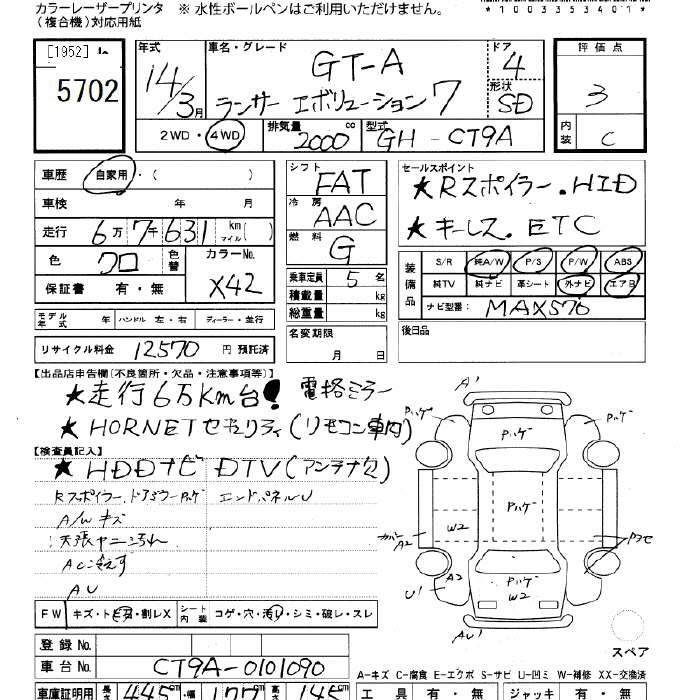 カラーレーザープリンタ ※ 水性ボールペンはご利用いただけません。
(複合機)対応用紙
*1003353401*
[1952]
5702
年式 車名・グレード ドア 評価点
14/3月 GT-A 4 3
ランサー エボリューション 7 形状 SD
2WD・4WD 排気量 2000 cc 型式 GH-CT9A 内装 C
車歴 自家用・( )
車検 年 月
走行 6万7千631 km マイル( )
色 クロ 色替 カラーNo. X42
保証書 有・無
シフト FAT
冷房 AAC
燃料 G
乗車定員 5 名
積載量 kg
総重量 kg
名変期限
月 日
セールスポイント
★Rスポイラー.HID
★キーレス.ETC
装備品 S/R 純A/W P/S P/W ABS
純TV 純ナビ 革シート 外ナビ エアB
ナビ型番: MAX576
後日品
モデル年式 年 ハンドル 左・右 ディーラー・並行
リサイクル料金 12570 円 預託済
【出品店申告欄(不良箇所・欠品・注意事項等)】
★走行6万Km台! 電格ミラー
★HORNETセキュリティ(リモコン車内)
【検査員記入】
★HDDナビ DTV(アンテナ欠)
Rスポイラー、ドアミラーハゲ エンドパネルU
A/Wキズ
天張ヤニ汚れ
AC冷えず
AU
A1
ハゲ
ハゲ
ハゲ
ハゲ
カバーA2
W2
A2
U1
ハゲ
W2
AU1
スペア
FW キズ・トビ石・割レX シート内装 コゲ・穴・汚レ・シミ・破レ・スレ
登録No.
車台No. CT9A-0101090
A-キズ C-腐食 E-エクボ S-サビ U-凹ミ W-補修 XX-交換済
車庫証明用 長さ 445 cm 幅 177 cm 高さ 145 cm
工具 有・無 ジャッキ 有・無